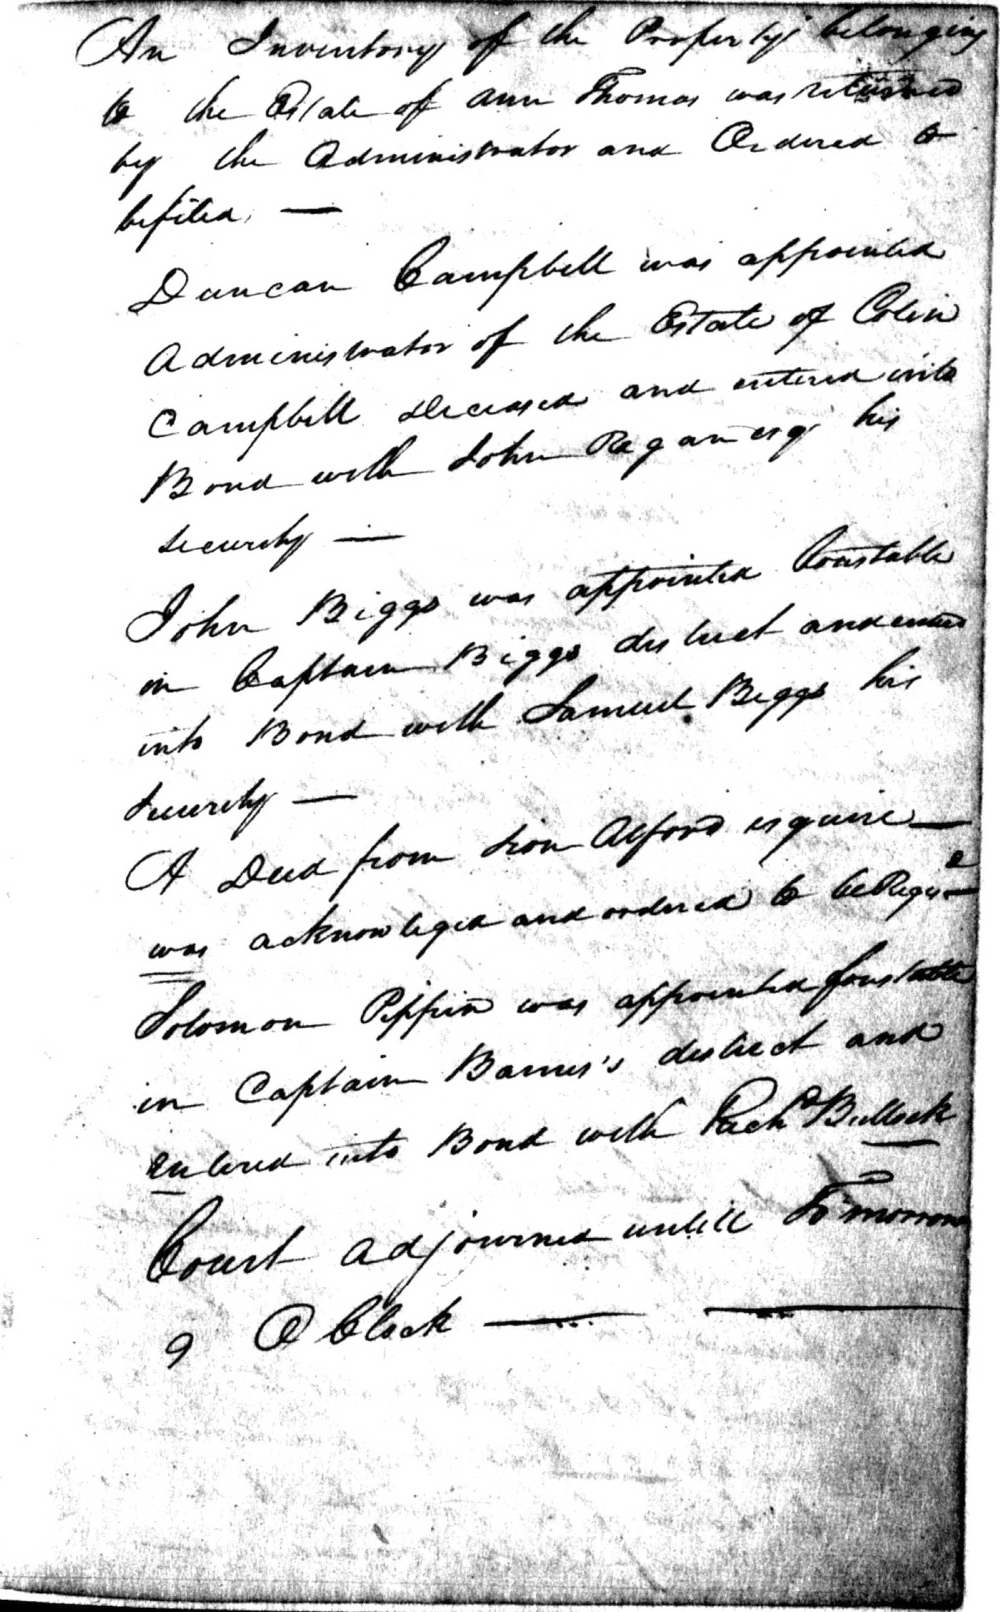 An Inventory of the Property belonging
to the Estate of Ann Thomas was returned
by the Administrator and Ordered to
be filed. —
Duncan Campbell was appointed
Administrator of the Estate of Colin
Campbell deceased and entered into
Bond with John Regan esqr his
security —
John Biggs was appointed Constable
in Captain Biggs district and entered
into Bond with Samuel Biggs his
Security —
A Deed from Sion Alford esquire —
was acknowleged and ordered to be Regisd
Solomon Pippin was appointed Constable
in Captain Barnes's district and
entered into Bond with Bullock
Court adjourned untill To morrow
9 O Clock —